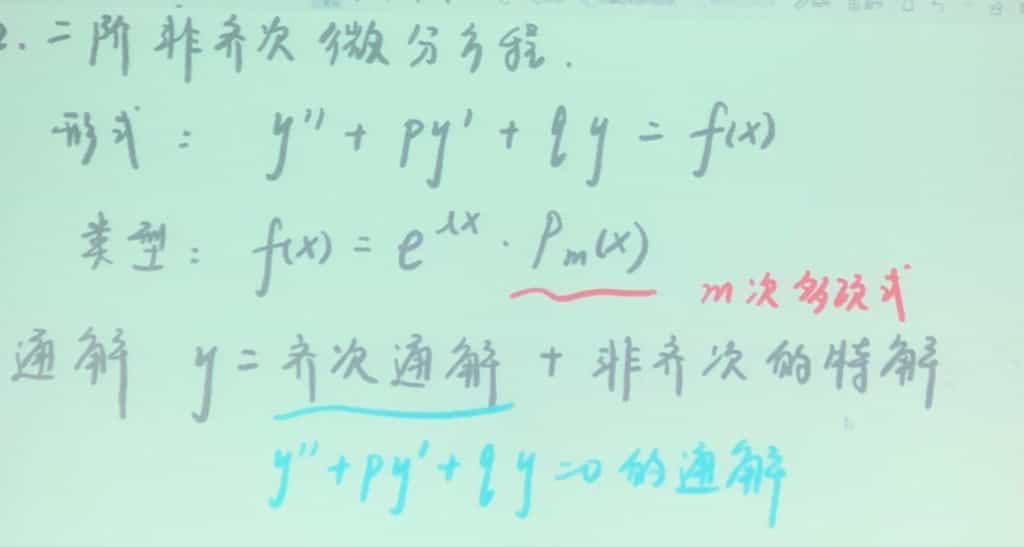 2. 二阶非齐次微分方程.
形式: y'' + py' + qy = f(x)
类型: f(x) = e^{λx} · P_m(x)
m次多项式
通解 y = 齐次通解 + 非齐次的特解
y'' + py' + qy = 0 的通解